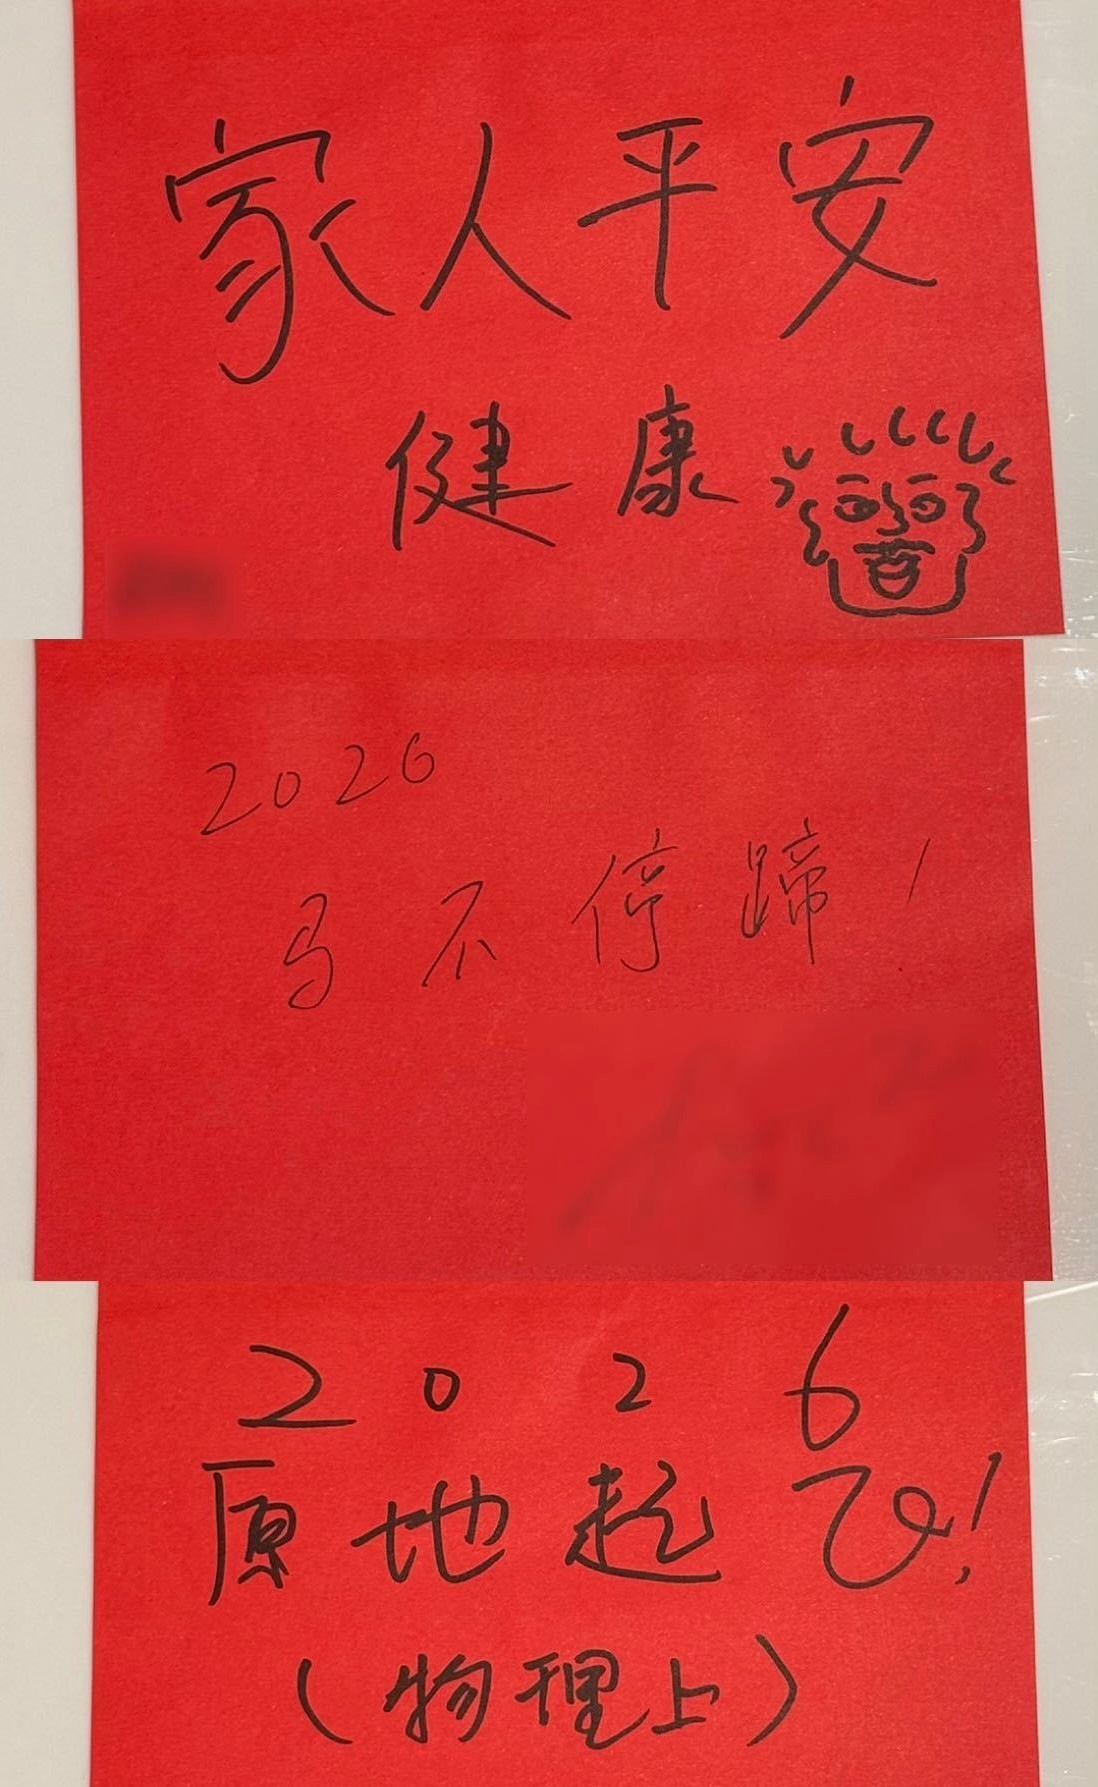 家人平安
健康
2026
马不停蹄!
2026
原地起飞!
(物理上)